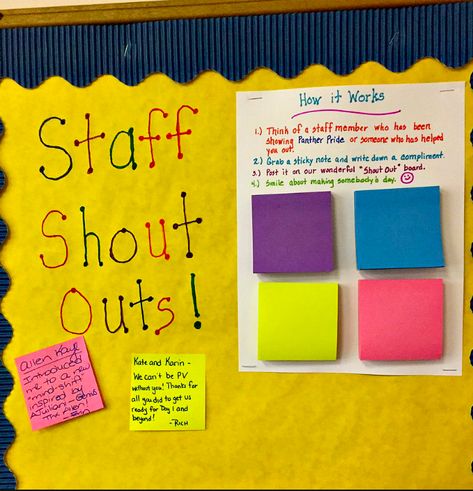 Staff
Shout
Outs!
How it Works
1.) Think of a staff member who has been
showing Panther Pride or someone who has helped
you out!
2.) Grab a sticky note and write down a compliment.
3.) Post it on our wonderful "Shout Out" board.
4.) Smile about making somebody's day.
Allen Kaye
Introduced
me to a new
"mind-shift"
inspired by
Kate and Karin -
We can't be PV
without you! Thanks for
all you did to get us
ready for Day 1 and
beyond!
-Rich